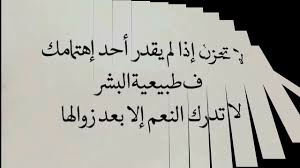 لا تحزن إذا لم يقدر أحد إهتمامك
ف طبيعية البشر
لا تدرك النعم إلا بعد زوالها